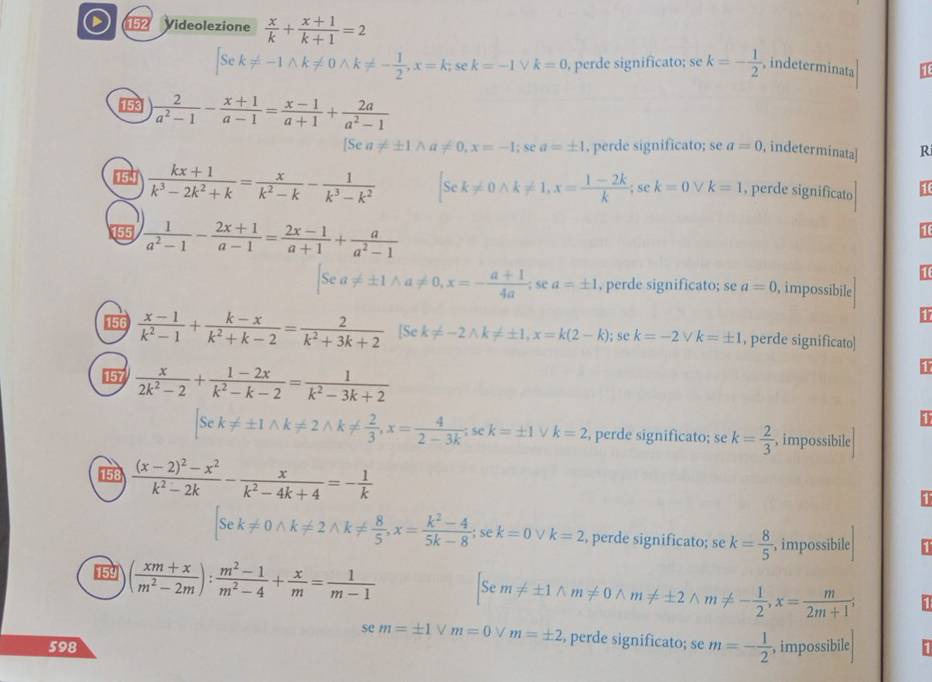 152 Videolezione x/k + (x + 1)/(k + 1) = 2
[Se k ≠ −1 ∧ k ≠ 0 ∧ k ≠ −1/2, x = k; se k = −1 ∨ k = 0, perde significato; se k = −1/2, indeterminata]
153 2/(a² − 1) − (x + 1)/(a − 1) = (x − 1)/(a + 1) + 2a/(a² − 1)
[Se a ≠ ±1 ∧ a ≠ 0, x = −1; se a = ±1, perde significato; se a = 0, indeterminata]
154 (kx + 1)/(k³ − 2k² + k) = x/(k² − k) − 1/(k³ − k²) [Se k ≠ 0 ∧ k ≠ 1, x = (1 − 2k)/k; se k = 0 ∨ k = 1, perde significato]
155 1/(a² − 1) − (2x + 1)/(a − 1) = (2x − 1)/(a + 1) + a/(a² − 1)
[Se a ≠ ±1 ∧ a ≠ 0, x = −(a + 1)/4a; se a = ±1, perde significato; se a = 0, impossibile]
156 (x − 1)/(k² − 1) + (k − x)/(k² + k − 2) = 2/(k² + 3k + 2) [Se k ≠ −2 ∧ k ≠ ±1, x = k(2 − k); se k = −2 ∨ k = ±1, perde significato]
157 x/(2k² − 2) + (1 − 2x)/(k² − k − 2) = 1/(k² − 3k + 2)
[Se k ≠ ±1 ∧ k ≠ 2 ∧ k ≠ 2/3, x = 4/(2 − 3k); se k = ±1 ∨ k = 2, perde significato; se k = 2/3, impossibile]
158 ((x − 2)² − x²)/(k² − 2k) − x/(k² − 4k + 4) = −1/k
[Se k ≠ 0 ∧ k ≠ 2 ∧ k ≠ 8/5, x = (k² − 4)/(5k − 8); se k = 0 ∨ k = 2, perde significato; se k = 8/5, impossibile]
159 ((xm + x)/(m² − 2m)) : (m² − 1)/(m² − 4) + x/m = 1/(m − 1) [Se m ≠ ±1 ∧ m ≠ 0 ∧ m ≠ ±2 ∧ m ≠ −1/2, x = m/(2m + 1);
se m = ±1 ∨ m = 0 ∨ m = ±2, perde significato; se m = −1/2, impossibile]
598